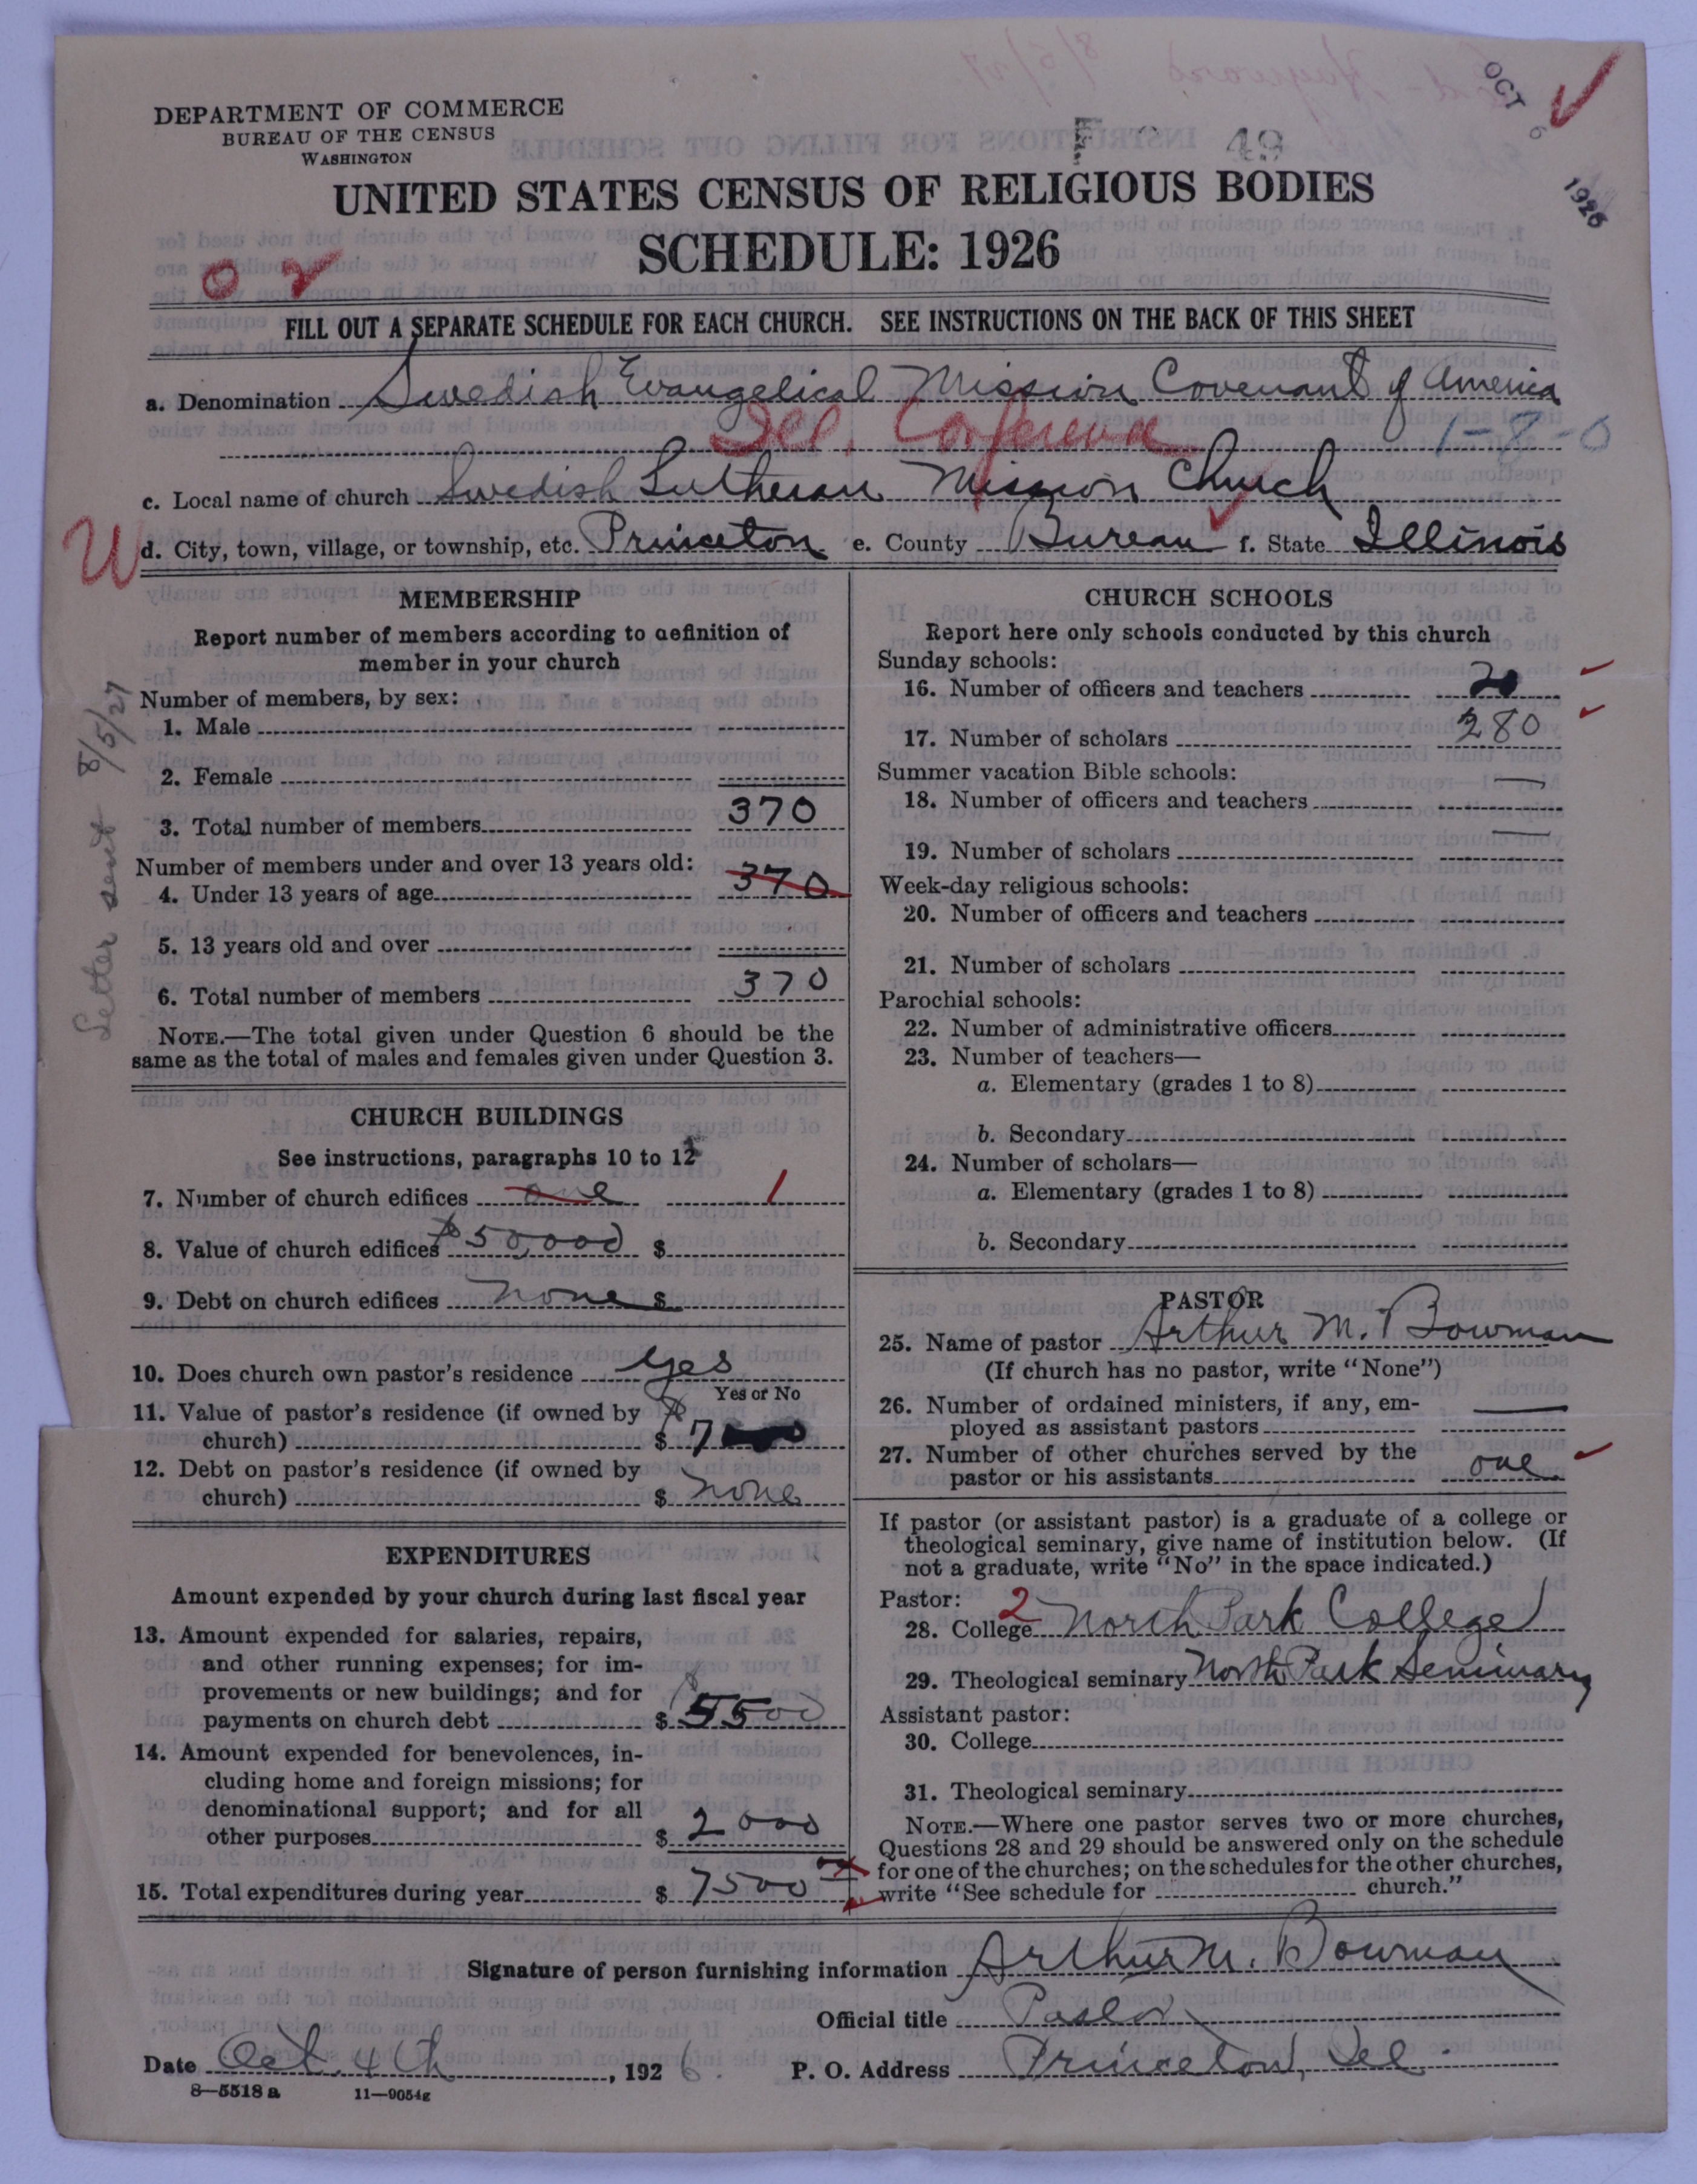 OCT 6 1926
DEPARTMENT OF COMMERCE
BUREAU OF THE CENSUS
WASHINGTON
49
UNITED STATES CENSUS OF RELIGIOUS BODIES
SCHEDULE: 1926
FILL OUT A SEPARATE SCHEDULE FOR EACH CHURCH. SEE INSTRUCTIONS ON THE BACK OF THIS SHEET
a. Denomination Swedish Evangelical Mission Covenant of America
Ill. Conference 1-8-0
c. Local name of church Swedish Lutheran Mission Church
d. City, town, village, or township, etc. Princeton e. County Bureau f. State Illinois
Letter sent 8/5/27
MEMBERSHIP
Report number of members according to definition of
member in your church
Number of members, by sex:
1. Male
2. Female
3. Total number of members 370
Number of members under and over 13 years old:
4. Under 13 years of age 370
5. 13 years old and over
6. Total number of members 370
NOTE.—The total given under Question 6 should be the
same as the total of males and females given under Question 3.
CHURCH BUILDINGS
See instructions, paragraphs 10 to 12
7. Number of church edifices one 1
8. Value of church edifices $50,000 $
9. Debt on church edifices none $
10. Does church own pastor's residence yes
Yes or No
11. Value of pastor's residence (if owned by
church) $ 7
12. Debt on pastor's residence (if owned by
church) $ none
EXPENDITURES
Amount expended by your church during last fiscal year
13. Amount expended for salaries, repairs,
and other running expenses; for im-
provements or new buildings; and for
payments on church debt $ 5500
14. Amount expended for benevolences, in-
cluding home and foreign missions; for
denominational support; and for all
other purposes $ 2000
15. Total expenditures during year $ 7500
CHURCH SCHOOLS
Report here only schools conducted by this church
Sunday schools:
16. Number of officers and teachers 20
17. Number of scholars 280
Summer vacation Bible schools:
18. Number of officers and teachers —
19. Number of scholars —
Week-day religious schools:
20. Number of officers and teachers
21. Number of scholars
Parochial schools:
22. Number of administrative officers
23. Number of teachers—
a. Elementary (grades 1 to 8)
b. Secondary
24. Number of scholars—
a. Elementary (grades 1 to 8)
b. Secondary
PASTOR
25. Name of pastor Arthur M. Bowman
(If church has no pastor, write "None")
26. Number of ordained ministers, if any, em-
ployed as assistant pastors —
27. Number of other churches served by the
pastor or his assistants one
If pastor (or assistant pastor) is a graduate of a college or
theological seminary, give name of institution below. (If
not a graduate, write "No" in the space indicated.)
Pastor:
28. College 2 North Park College
29. Theological seminary North Park Seminary
Assistant pastor:
30. College
31. Theological seminary
NOTE.—Where one pastor serves two or more churches,
Questions 28 and 29 should be answered only on the schedule
for one of the churches; on the schedules for the other churches,
write "See schedule for church."
Signature of person furnishing information Arthur M. Bowman
Official title Pastor
Date Oct. 4th, 1926. P. O. Address Princeton, Ill.
8—5518 a 11—9054g